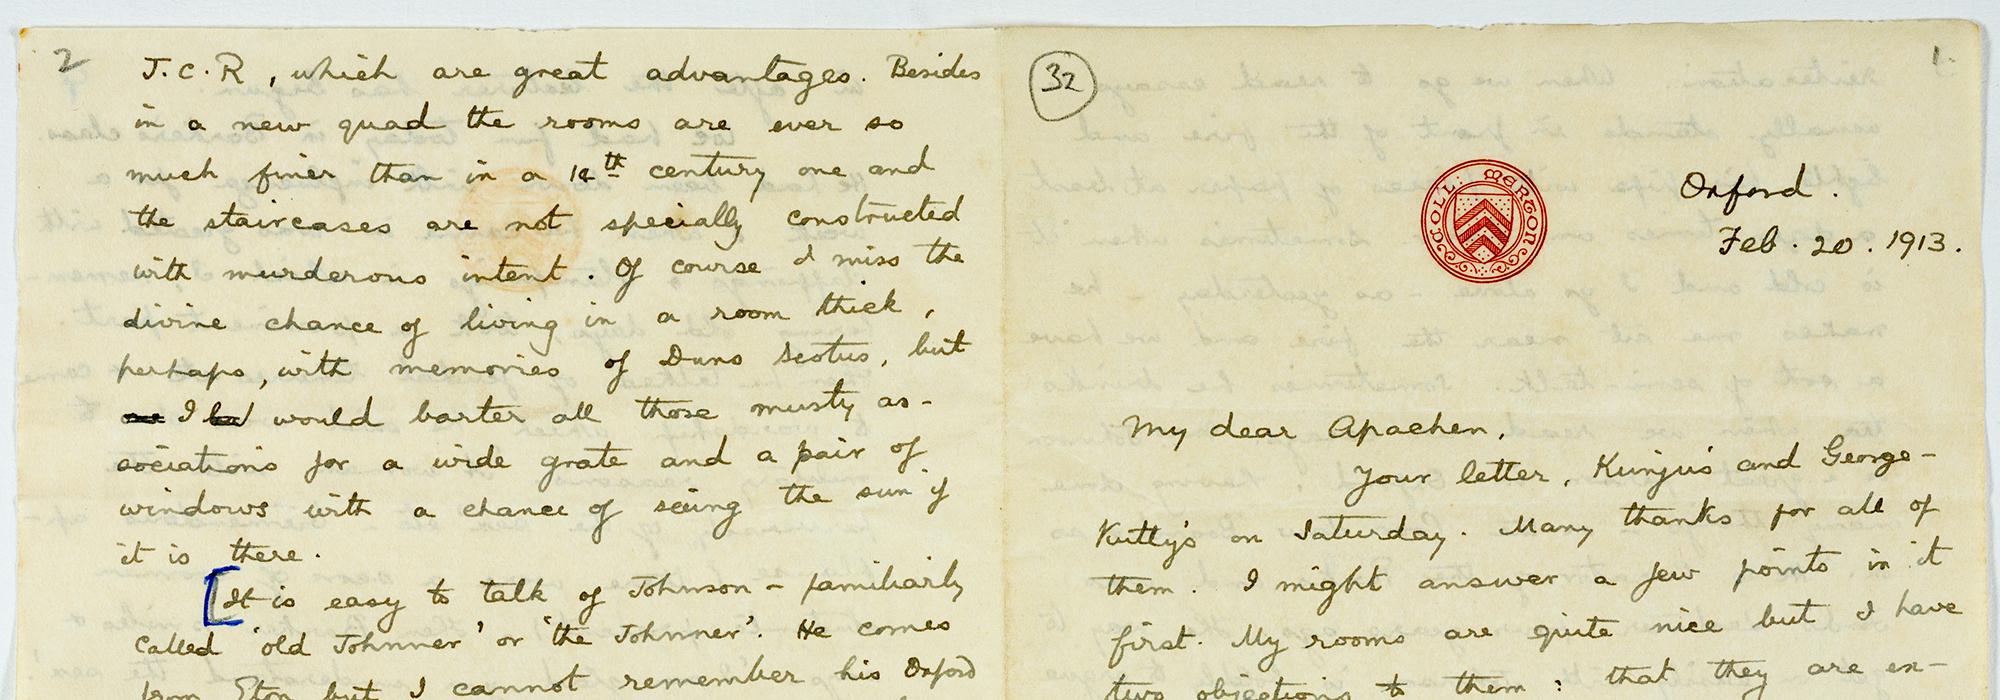 1.
32
COLL: MERTON
Oxford.
Feb. 20. 1913.
My dear Apachen,
Your letter, Kunju's and George-
Kutty's on Saturday. Many thanks for all of
them. I might answer a few points in it
first. My rooms are quite nice but I have
two objections to them: that they are en-
2
J.C.R, which are great advantages. Besides
in a new quad the rooms are ever so
much finer than in a 14th century one and
the staircases are not specially constructed
with murderous intent. Of course I miss the
divine chance of living in a room thick,
perhaps, with memories of Duns Scotus, but
I would barter all those musty as-
sociations for a wide grate and a pair of
windows with a chance of seeing the sun if
it is there.
[It is easy to talk of Johnson - familiarly
called 'old Johnner' or 'the Johnner'. He comes
from Eton but I cannot remember his Oxford